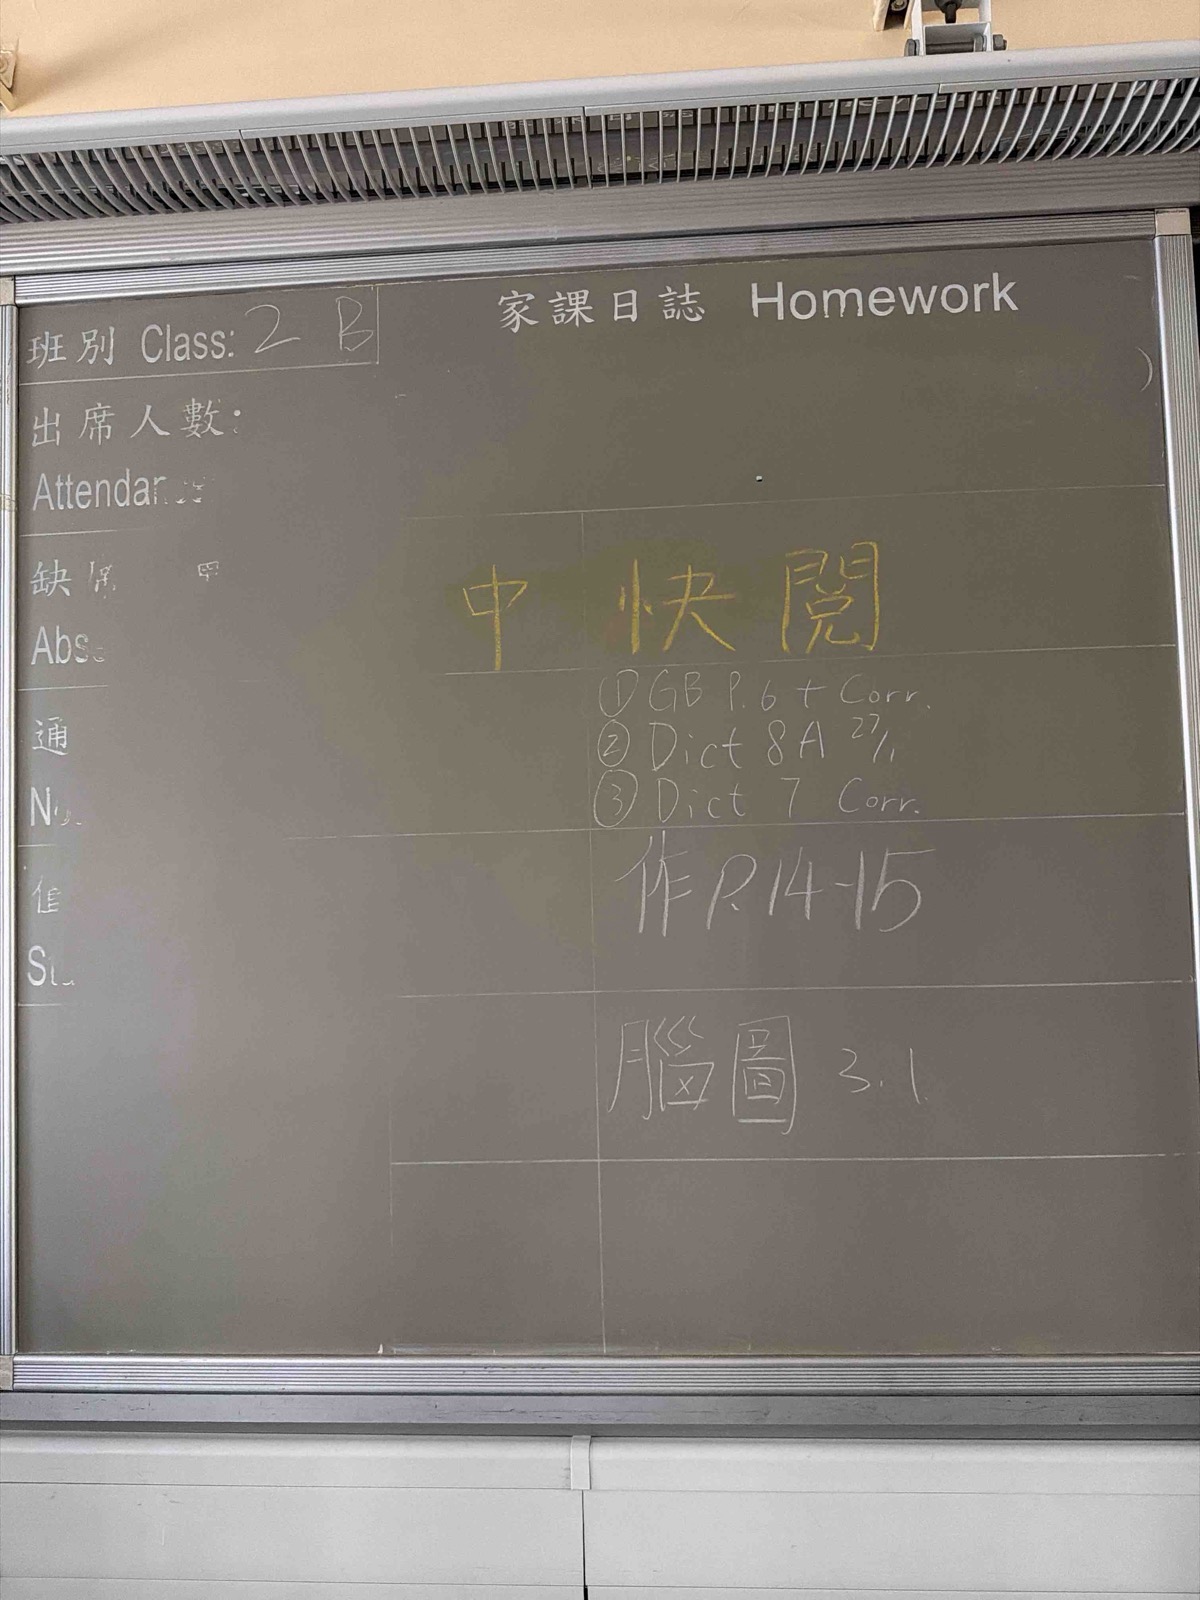 家課日誌 Homework
班別 Class: 2 B
出席人數:
缺席
通
中 快閱
① GB P.6 + Corr.
② Dict 8A 27/1
③ Dict 7 Corr.
作 P.14-15
腦圖 3.1